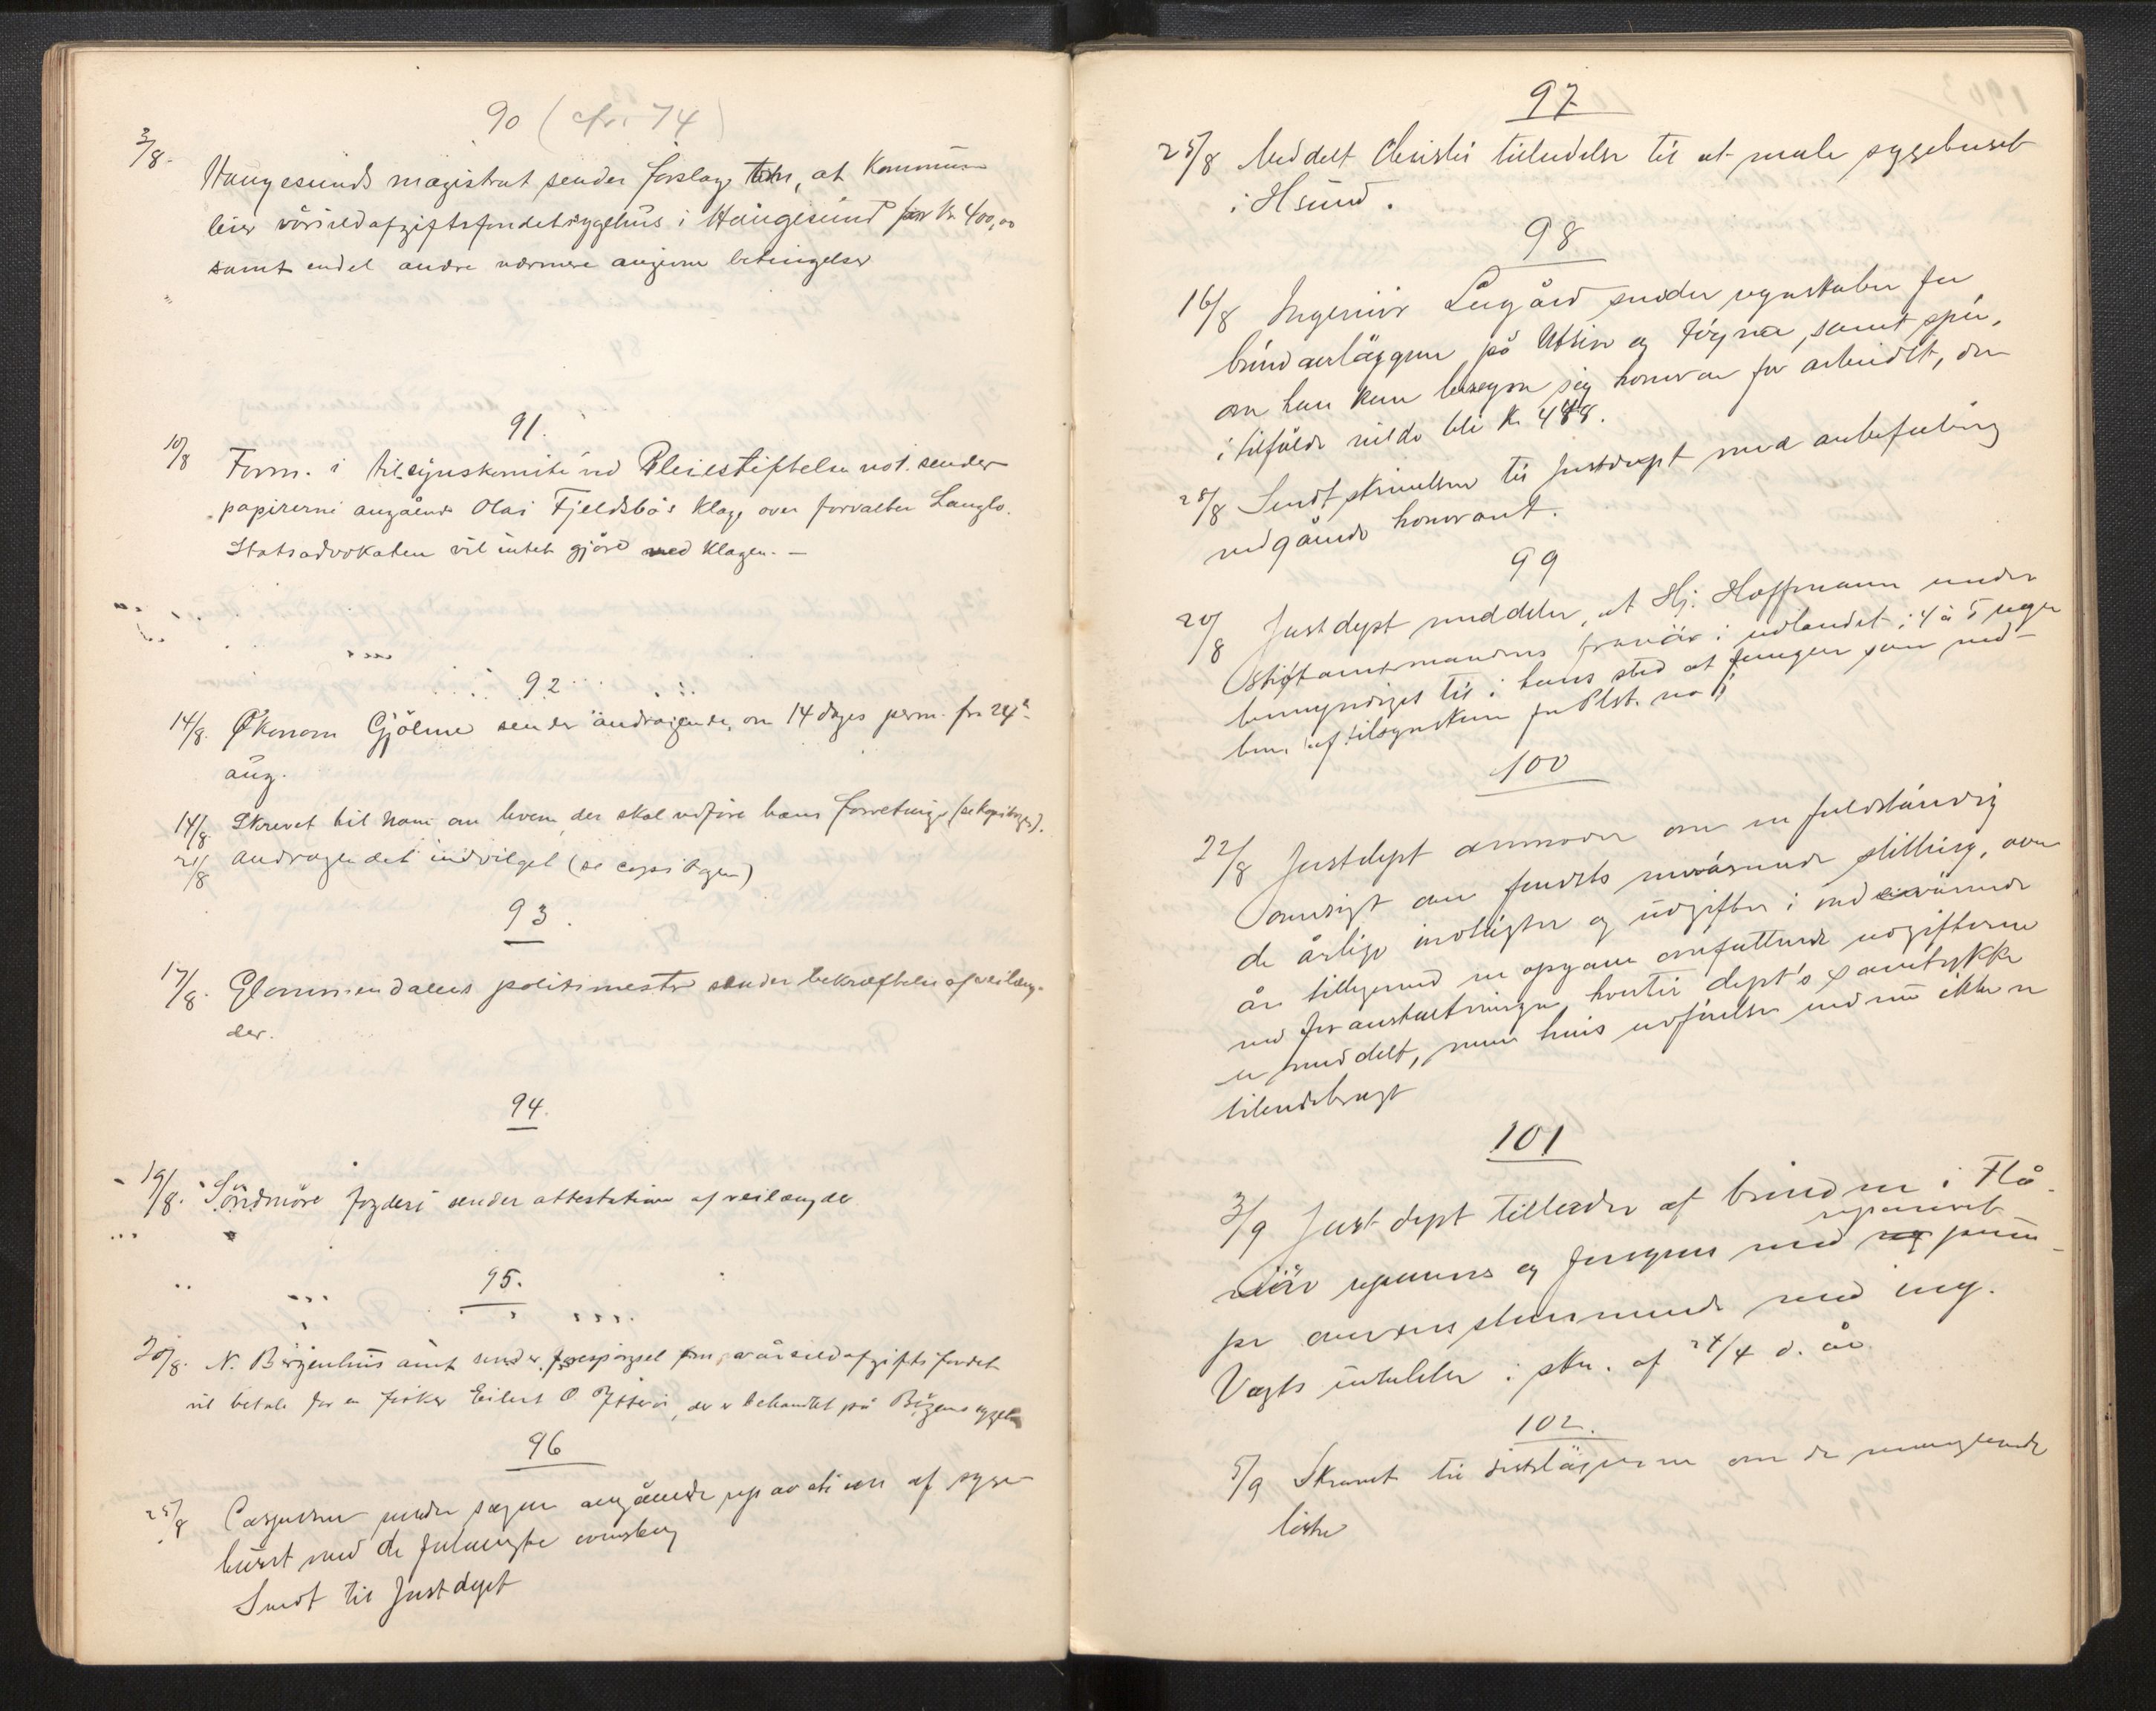 90 (cfr. 74)
3/8. Haugesunds magistrat sender forslag om, at Kommunen
leier vårsildafgiftsfondets sygehus i Haugesund for kr. 400,00
samt endel andre nærmere angivne betingelser
91.
10/8 Form. i tilsynskomite'en ved Pleiestiftelsen no 1. sender
papirerne angående Olai Fjeldsbø's klage over forvalter Langlo.
Statsadvokaten vil intet gjöre ved klagen. —
92
14/8. Økonom Gjölme sender andragende, om 14 dages perm. fra 24de
aug.
14/8. Skrevet til ham om hvem der skal udföre hans forretninger (se kopibogen).
21/8 Andragendet indvilget (se copibogen)
93.
17/8. Glommendalens politimester sender bekræftelse af veilæng-
der.
94.
19/8. Söndmöre fogderi sender attestation af veilængder
95.
20/8. N. Bergenhus amt sender forespörgsel om vårsildafgiftsfondet
vil betale for en fisker Eilert O. , der er behandlet på Bergens sygehus
96
25/8 Caspersen sender sagen angående reparationen af syge-
huset med de forlangte
Sendt til Justdept
97
25/8 Meddelt Christie tilladelse til at male sygehuset
i Hsund.
98
16/8 Ingeniör Legård sender regnskaber for
brönd anläggene på Utsire og Rögvær, samt spör,
om han kan beregne sig honorar for arbeidet, der
i tilfälde vilde bli Kr. 488.
28/8 Sendt skrivelsen til Justdept med anbefaling
vedgående honoraret.
99
20/8 Justdept meddeler, at Hj. Hoffmann under
Stiftamtmandens fravär i udlandet i 4 à 5 uger
bemyndiges til i hans sted at fungere som med-
lem af tilsynskom for Plst. no 1
100
22/8 Justdept anmoder om en fuldständig
oversigt om fondets nuværende stilling, over
de årlige indtægter og udgifter i indeværende
år tilligemed en opgave omfattende udgifterne
ved foranstaltninger, hvortil dept's samtykke
er meddelt, men hvis udförelse endnu ikke er
tilendebragt
101
3/9 Justdept tillader at brönden i Flå-
vär renses og forsynes med repareret pum-
pe overensstemmende med ing.
Vogts udtalelse i skr. af 24/4 d. år.
102.
5/9 Skrevet til distslägerne om de manglende
lister